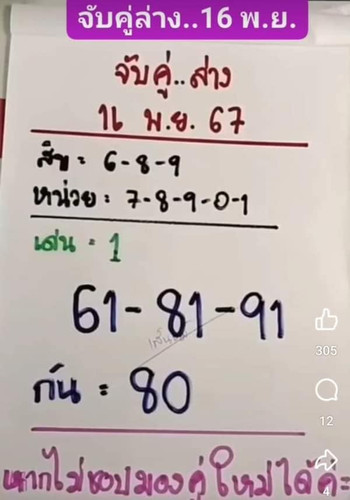 จับคู่ล่าง..16 พ.ย.
จับคู่..ล่าง
16 พ.ย. 67
สิบ = 6-8-9
หน่วย : 7-8-9-0-1
เด่น = 1
61-81-91
กัน = 80
หากไม่ชอบมองคู่ใหม่ได้ค่ะ
305
12
4